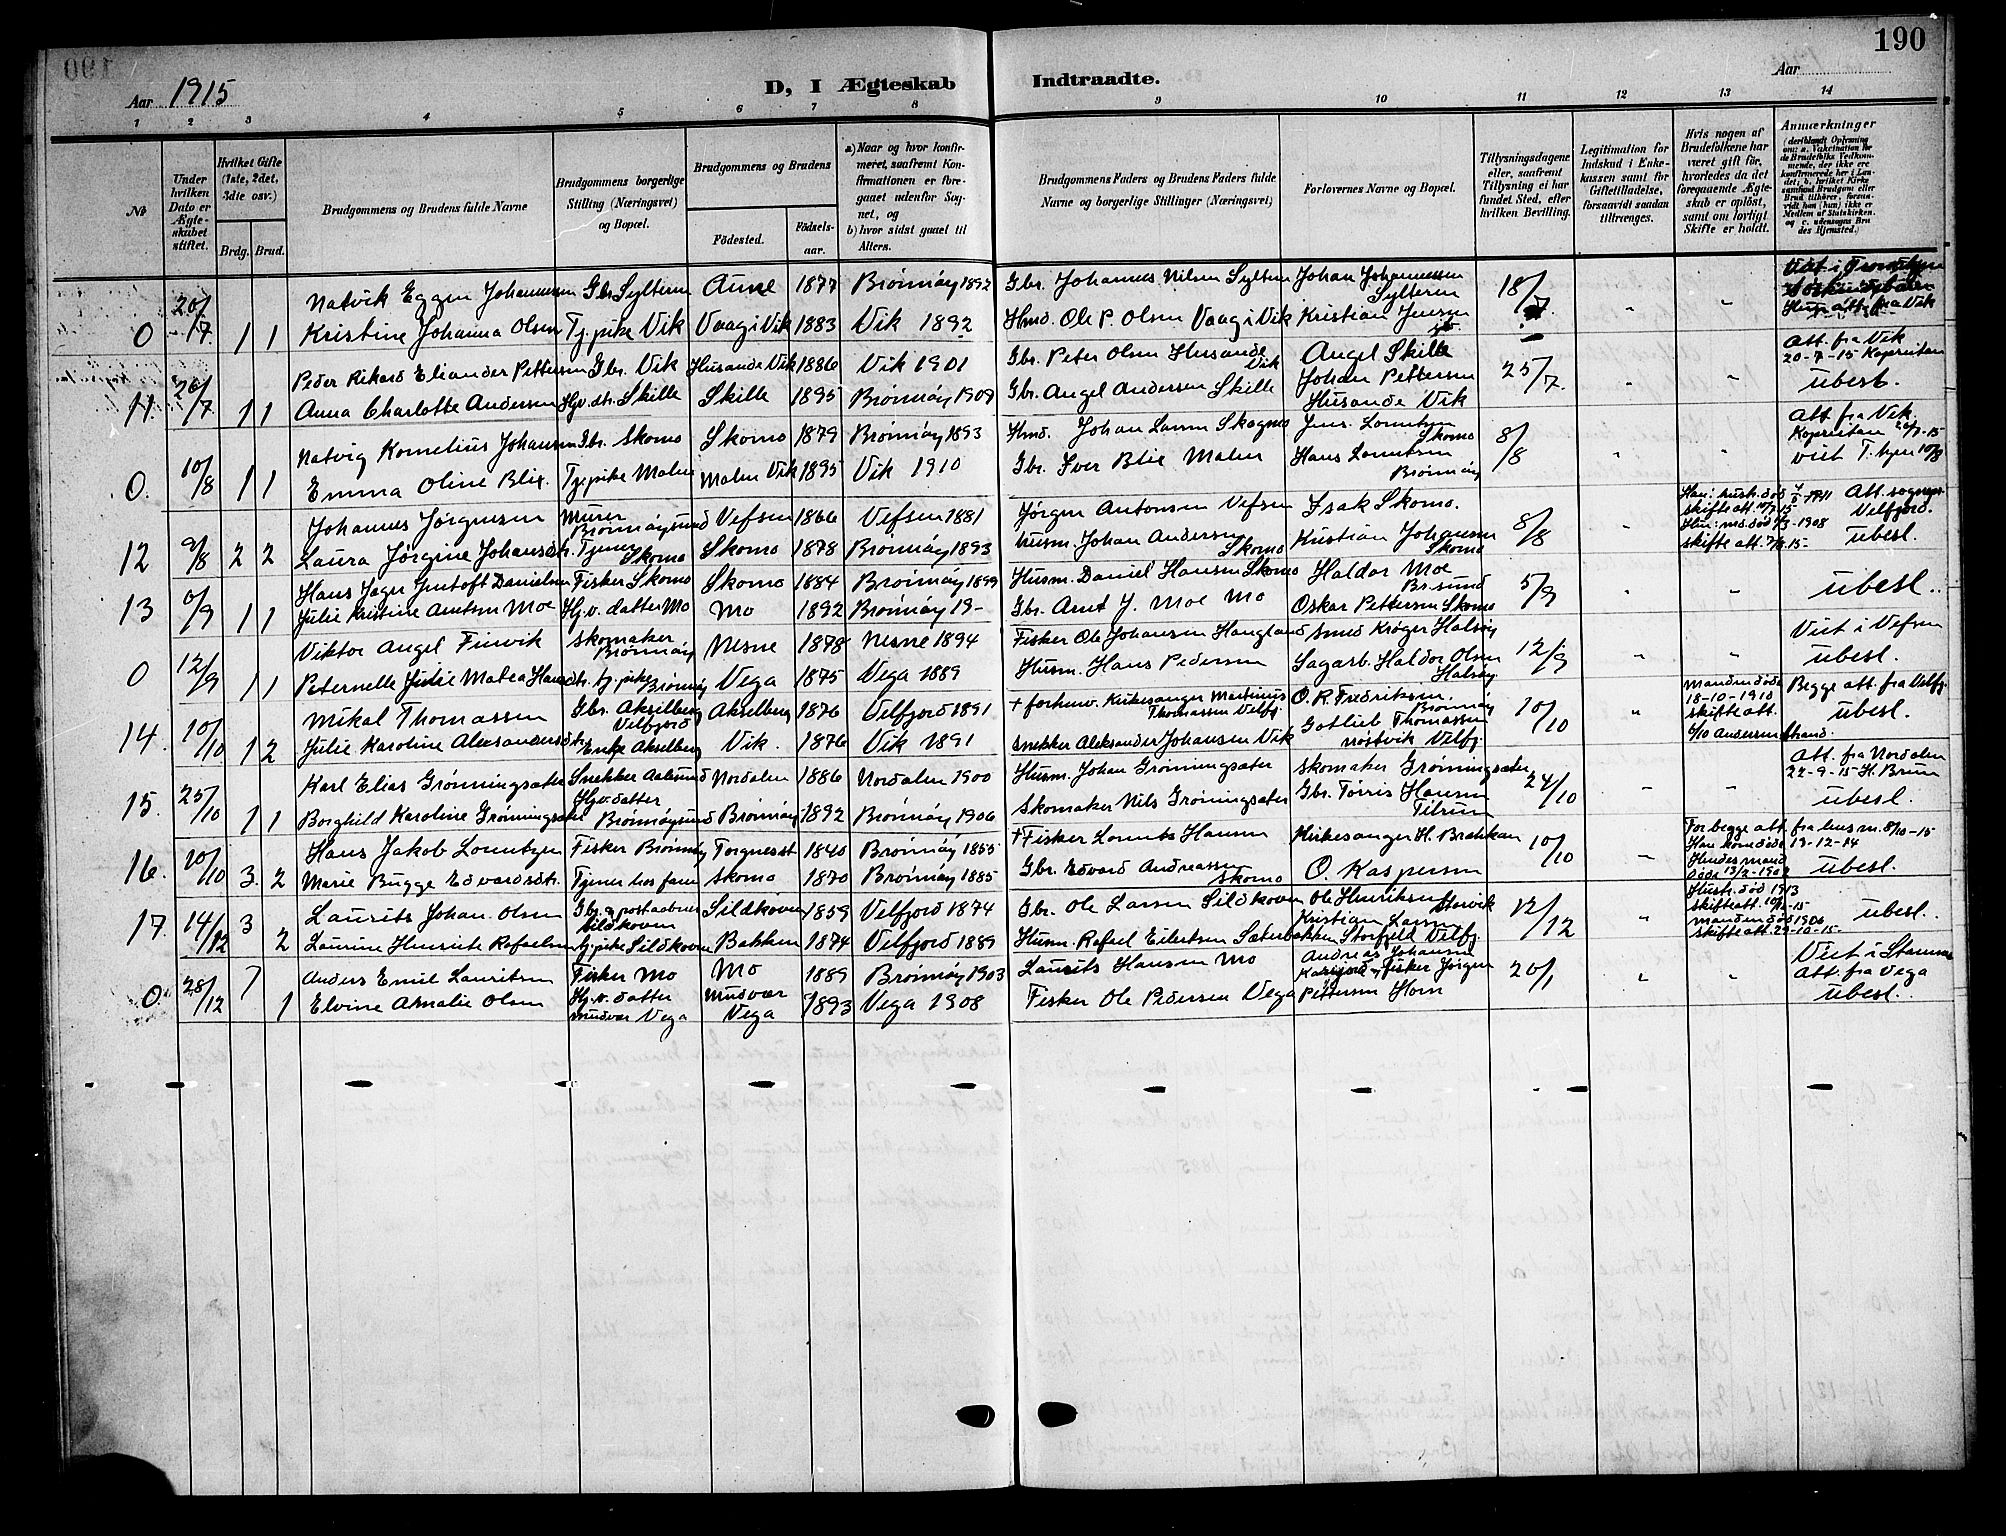 190
Aar 1915
D, I Ægteskab Indtraadte.
Aar
1 2 3 4 5 6 7 8 9 10 11 12 13 14
No
Under hvilken Dato er Ægteskabet stiftet.
Hvilket Gifte (1ste, 2det, 3die osv.)
Brdg. Brud.
Brudgommens og Brudens fulde Navne
Brudgommens borgerlige Stilling (Næringsvei) og Bopæl.
Brudgommens og Brudens
Födested. Födsels-aar.
a) Naar og hvor konfirmeret, saafremt Konfirmationen er foregaaet udenfor Sognet, og
b) hvor sidst gaaet til Alters.
Brudgommens Faders og Brudens Faders fulde Navne og borgerlige Stillinger (Næringsvei)
Forlovernes Navne og Bopæl.
Tillysningsdagene eller, saafremt Tillysning ei har fundet Sted, efter hvilken Bevilling.
Legitimation for Indskud i Enkekassen samt for Giftetilladelse, forsaavidt saadan tiltrænges.
Hvis nogen af Brudefolkene har været gift för, hvorledes da det foregaaende Ægteskab er oplöst, samt om lovligt Skifte er holdt.
Anmærkninger
0 20/7 1 1
Natvik Eggen Johannessen Gbr. Sylteren Aune 1877 Brönnöy 1892 Gbr. Johannes Nilsen Sylteren Johan Johannessen Sylteren 18/7
Kristine Johanna Olsen Tj. pike Vik Vaag i Vik 1883 Vik 1892 Hmd. Ole P. Olsen Vaag i Vik Kristian Jensen
11 26/7 1 1
Peder Rikard Eliander Pettersen Gbr. Vik Husande Vik 1886 Vik 1901 Gbr. Peter Olsen Husande Vik Angel Skille 25/7 Att. fra Vik 20-7-15
Anna Charlotte Andersen Hjv. dtr. Skille Skille 1895 Brönnöy 1909 Gbr. Angel Andersen Skille Johan Pettersen Husande Vik ubesl.
0. 10/8 1 1
Natvig Kornelius Johansen Gbr. Skomo Skomo 1879 Brönnöy 1893 Hmd. Johan Larsen Skogmo Jens Lorentzen Skomo 8/8 Att. fra Vik.
Emma Oline Blix. Tj. pike Malen Malen Vik 1895 Vik 1910 Gbr. Iver Blix Malen Hans Lorentsen Brönnöy
12 9/8 2 2
Johannes Jörgensen Murer Brönnöysund Vefsen 1866 Vefsen 1881 Jörgen Antonsen Vefsen Isak Skomo. 8/8 Att. sognepr. Velfjord.
Laura Jörgine Johansdtr. Tjener Skomo Skomo 1878 Brönnöy 1893 Husm. Johan Andersen Skomo Kristian Johansen Skomo ubesl.
13 6/9 1 1
Hans Jager Gustoft Danielsen Fisker Skomo Skomo 1884 Brönnöy 1899 Husm. Daniel Hansen Skomo Haldor Moe Br.sund 5/9 ubesl.
Julie Kristine Arntsen Moe Hjv. datter Mo Mo 1892 Brönnöy 19- Gbr. Arnt J. Moe Mo Oskar Pettersen Skomo
0 12/9 1 1
Viktor Angel Finvik Skomaker Brönnöy Nesne 1878 Nesne 1894 Fisker Ole Johansen Haugland Smed Kröger Halsöy 12/9 Viet i Vefsen
Peternelle Julie Matea Hansdtr. tj. pike Brönnöy Vega 1875 Vega 1889 Husm. Hans Pedersen Sagarb. Haldor Olsen Halsöy ubesl.
14. 10/10 1 2
Mikal Thomassen Gbr. Akselberg Velfjord Akselberg 1876 Velfjord 1891 + forhenv. Kirkesanger Martinus Thomassen Velfj. O. R. Fredriksen. Brönnöy 10/10 manden döde 18-10-1910 skifte att. Begge att. fra Velfj. ubesl.
Julie Karoline Aleksandersdtr. Enke Akselberg Vik. 1876 Vik 1891 Snekker Aleksander Johansen Vik Gotlieb Thomassen Nöstvik Velfj. 6/10 Anderssen Strand.
15. 25/10 1 1
Karl Elias Grönningsæter Snekker Aalesund Nordalen 1886 Nordalen 1900 Husm. Johan Grönningsæter Skomaker Grönningsæter 24/10 Att. fra Nordalen 22-9-15 H. Brun
Borghild Karoline Grönningsæter Hjv. datter Brönnöysund Brönnöy 1892 Brönnöy 1906 Skomaker Nils Grönningsæter Gbr. Törris Hansen Tilrem ubesl.
16. 10/10 3. 2
Hans Jakob Lorentzen Fisker Brönnöy Torgnesst 1840 Brönnöy 1855 + Fisker Lorents Hansen Kirkesanger H. Brækkan 10/10 For begge att. fra lensm. 8/10-15 Hans kone döde 19-12-14
Marie Bugge Edvardsdtr. Tjener hos faren Skomo 1870 Brönnöy 1885 Gbr. Edvard Andreassen Skomo O. Kaspersen Hendes mand döde 13/2-1902 ubesl.
17. 14/12 3 2
Laurits Johan Olsen Gbr. og postaabner Sildkoven Sildkoven 1859 Velfjord 1874 Gbr. Ole Larsen Sildkoven Ole Henriksen Storvik 12/12 Hustr. död 1913 skifteatt. 10/12-15 ubesl.
Laurine Henriette Rafaelsen tj. pike Sildkoven Bakken 1874 Velfjord 1889 Husm. Rafael Eilertsen Sæterbakken Kristian Larsen Storfjeld Velfj. manden död 1906 skifteatt. 29-10-15.
0. 28/12 1 1
Anders Emil Lauritsen Fisker Mo Mo 1889 Brönnöy 1903 Laurits Hansen Mo Andreas Johansen 20/1 Viet i
Elvine Amalie Olsen Hjv. datter Muddvær Vega Muddvær Vega 1893 Vega 1908 Fisker Ole Pedersen Vega Fisker Jörgen Pettersen Horn Att. fra Vega ubesl.